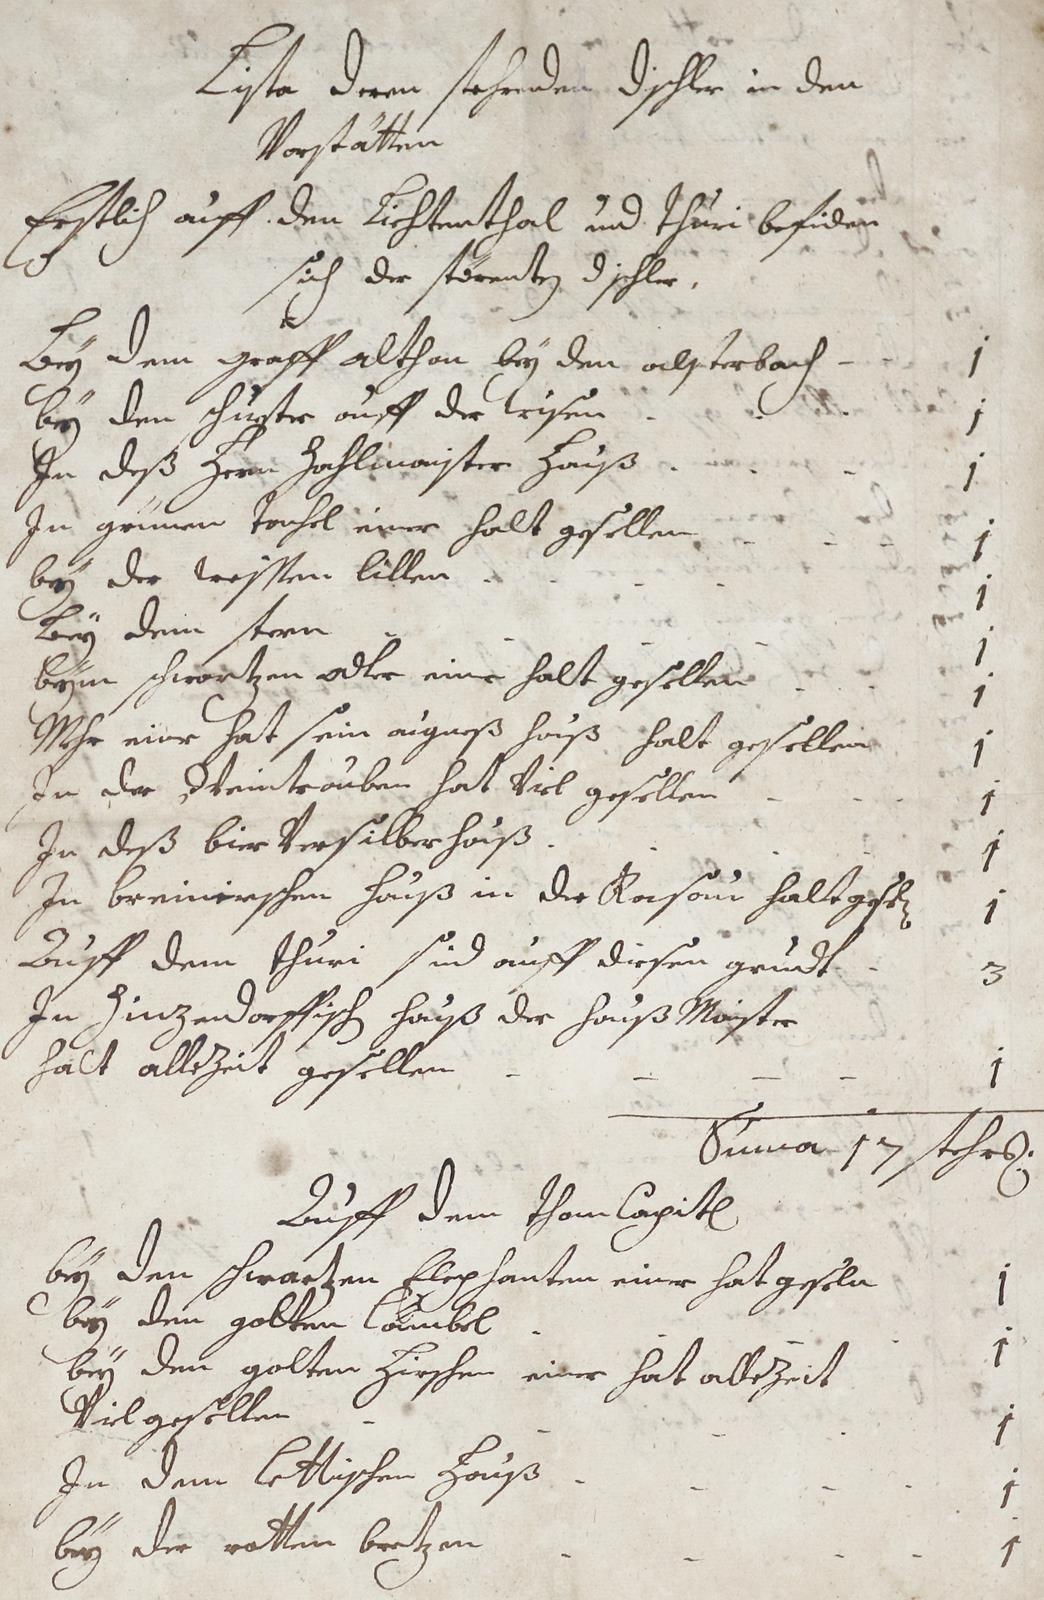 Lista deren stehrenden dischler in den
Vorstätten
Erstlich auff den Liechtenthal und Thuri befiden
sich der störenten dischler,
Bey dem graff althan bey den alsterbach 1
bey den schuster auff der wisen 1
In deß Herrn Zahlmaister Hauß 1
In grünen Tachel einer halt gesellen 1
bey der weissen lillen 1
Bey dem stern 1
beym schwartzen adler einer halt gesellen 1
Mehr einer hat sein aigneß hauß halt gesellen 1
In der Weintrauben hat Viel gesellen 1
In deß bier Versilber hauß 1
In hauß in der Rasau halt gesel 1
Auff dem Thuri sind auff diesen grundt 3
In Zinzendorffisch hauß der hauß Maister
halt allezeit gesellen 1
Suma 17 stehrer
Auff dem thom Capitl
bey den schwartzen Elephanten einer hat geseln 1
bey den golten Lämbel 1
bey den golten Hirschen einer hat allezeit
Viel gesellen 1
In dem Hauß 1
bey der rotten bretzen 1